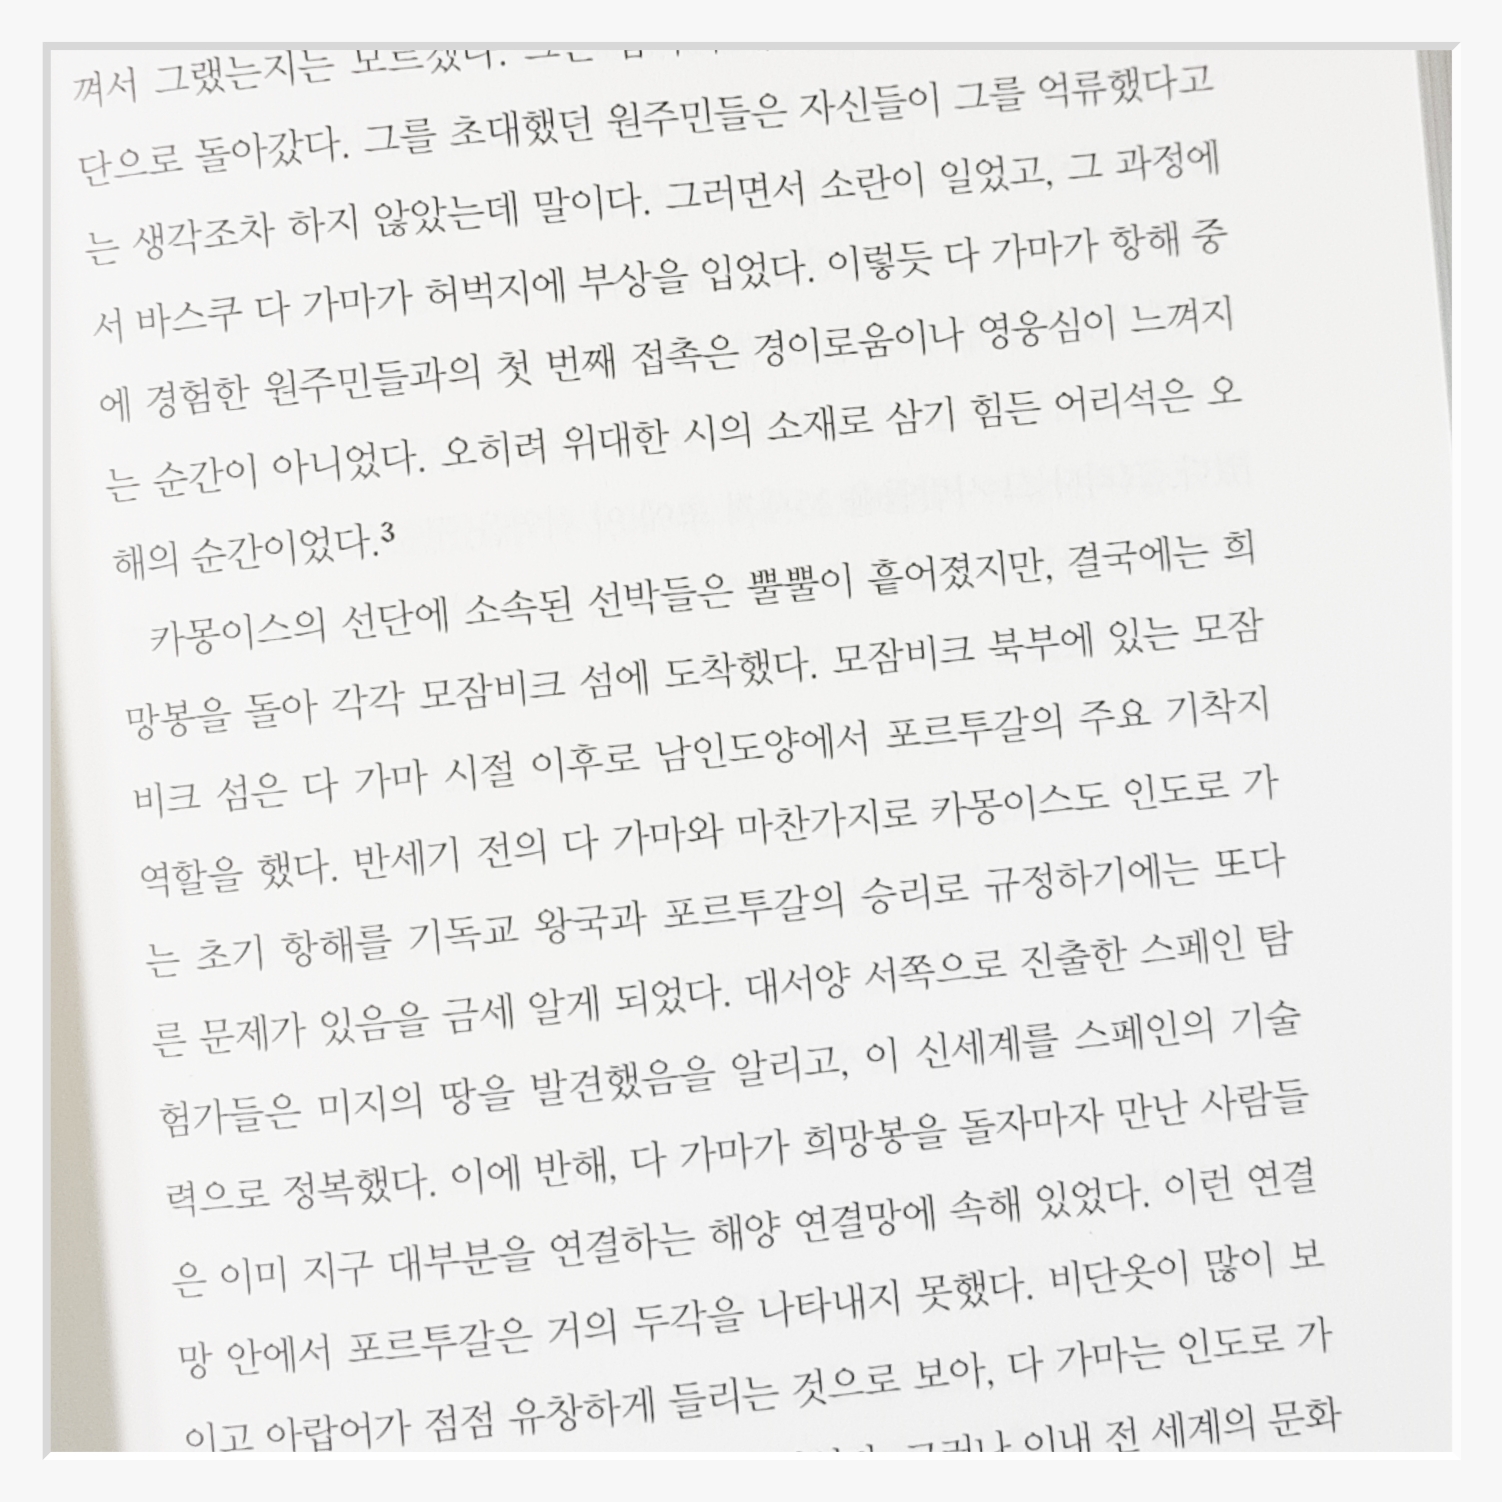 껴서 그랬는지는 모르겠다. 그는
단으로 돌아갔다. 그를 초대했던 원주민들은 자신들이 그를 억류했다고
는 생각조차 하지 않았는데 말이다. 그러면서 소란이 일었고, 그 과정에
서 바스쿠 다 가마가 허벅지에 부상을 입었다. 이렇듯 다 가마가 항해 중
에 경험한 원주민들과의 첫 번째 접촉은 경이로움이나 영웅심이 느껴지
는 순간이 아니었다. 오히려 위대한 시의 소재로 삼기 힘든 어리석은 오
해의 순간이었다.³
카몽이스의 선단에 소속된 선박들은 뿔뿔이 흩어졌지만, 결국에는 희
망봉을 돌아 각각 모잠비크 섬에 도착했다. 모잠비크 북부에 있는 모잠
비크 섬은 다 가마 시절 이후로 남인도양에서 포르투갈의 주요 기착지
역할을 했다. 반세기 전의 다 가마와 마찬가지로 카몽이스도 인도로 가
는 초기 항해를 기독교 왕국과 포르투갈의 승리로 규정하기에는 또다
른 문제가 있음을 금세 알게 되었다. 대서양 서쪽으로 진출한 스페인 탐
험가들은 미지의 땅을 발견했음을 알리고, 이 신세계를 스페인의 기술
력으로 정복했다. 이에 반해, 다 가마가 희망봉을 돌자마자 만난 사람들
은 이미 지구 대부분을 연결하는 해양 연결망에 속해 있었다. 이런 연결
망 안에서 포르투갈은 거의 두각을 나타내지 못했다. 비단옷이 많이 보
이고 아랍어가 점점 유창하게 들리는 것으로 보아, 다 가마는 인도로 가
그러나 이내 전 세계의 문화